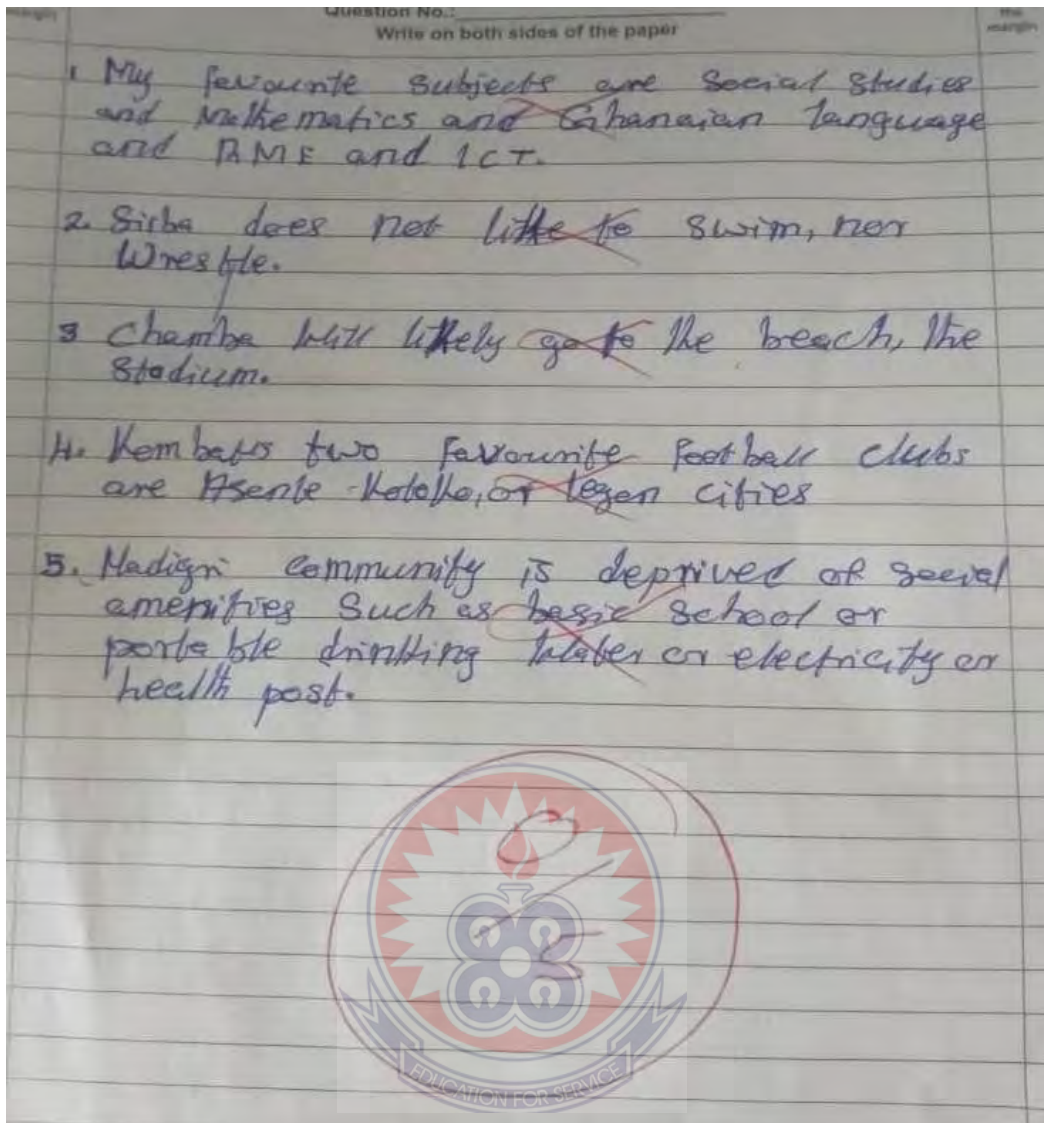 margin
Question No.:
the
margin
Write on both sides of the paper
1. My favourite subjects are Social Studies
and Mathematics and Ghanaian language
and RME and ICT.
2. Sicba does not like to swim, nor
Wrestle.
3 Chamba will likely go to the beach, the
Stadium.
4. Kembats two favourite football clubs
are Asante Kotoko, or legon cities
5. Nadigri community is deprived of social
amenities Such as basic school or
portable drinking water or electricity or
health post.
0
5
EDUCATION FOR SERVICE